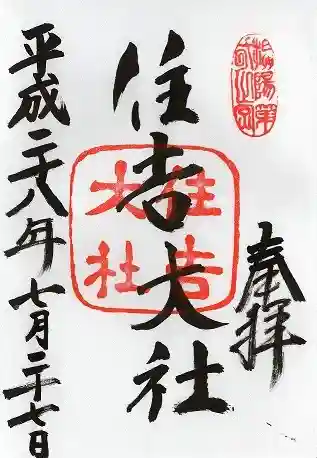 奉拝
住吉大社
住吉
大社
平成二十八年七月二十七日